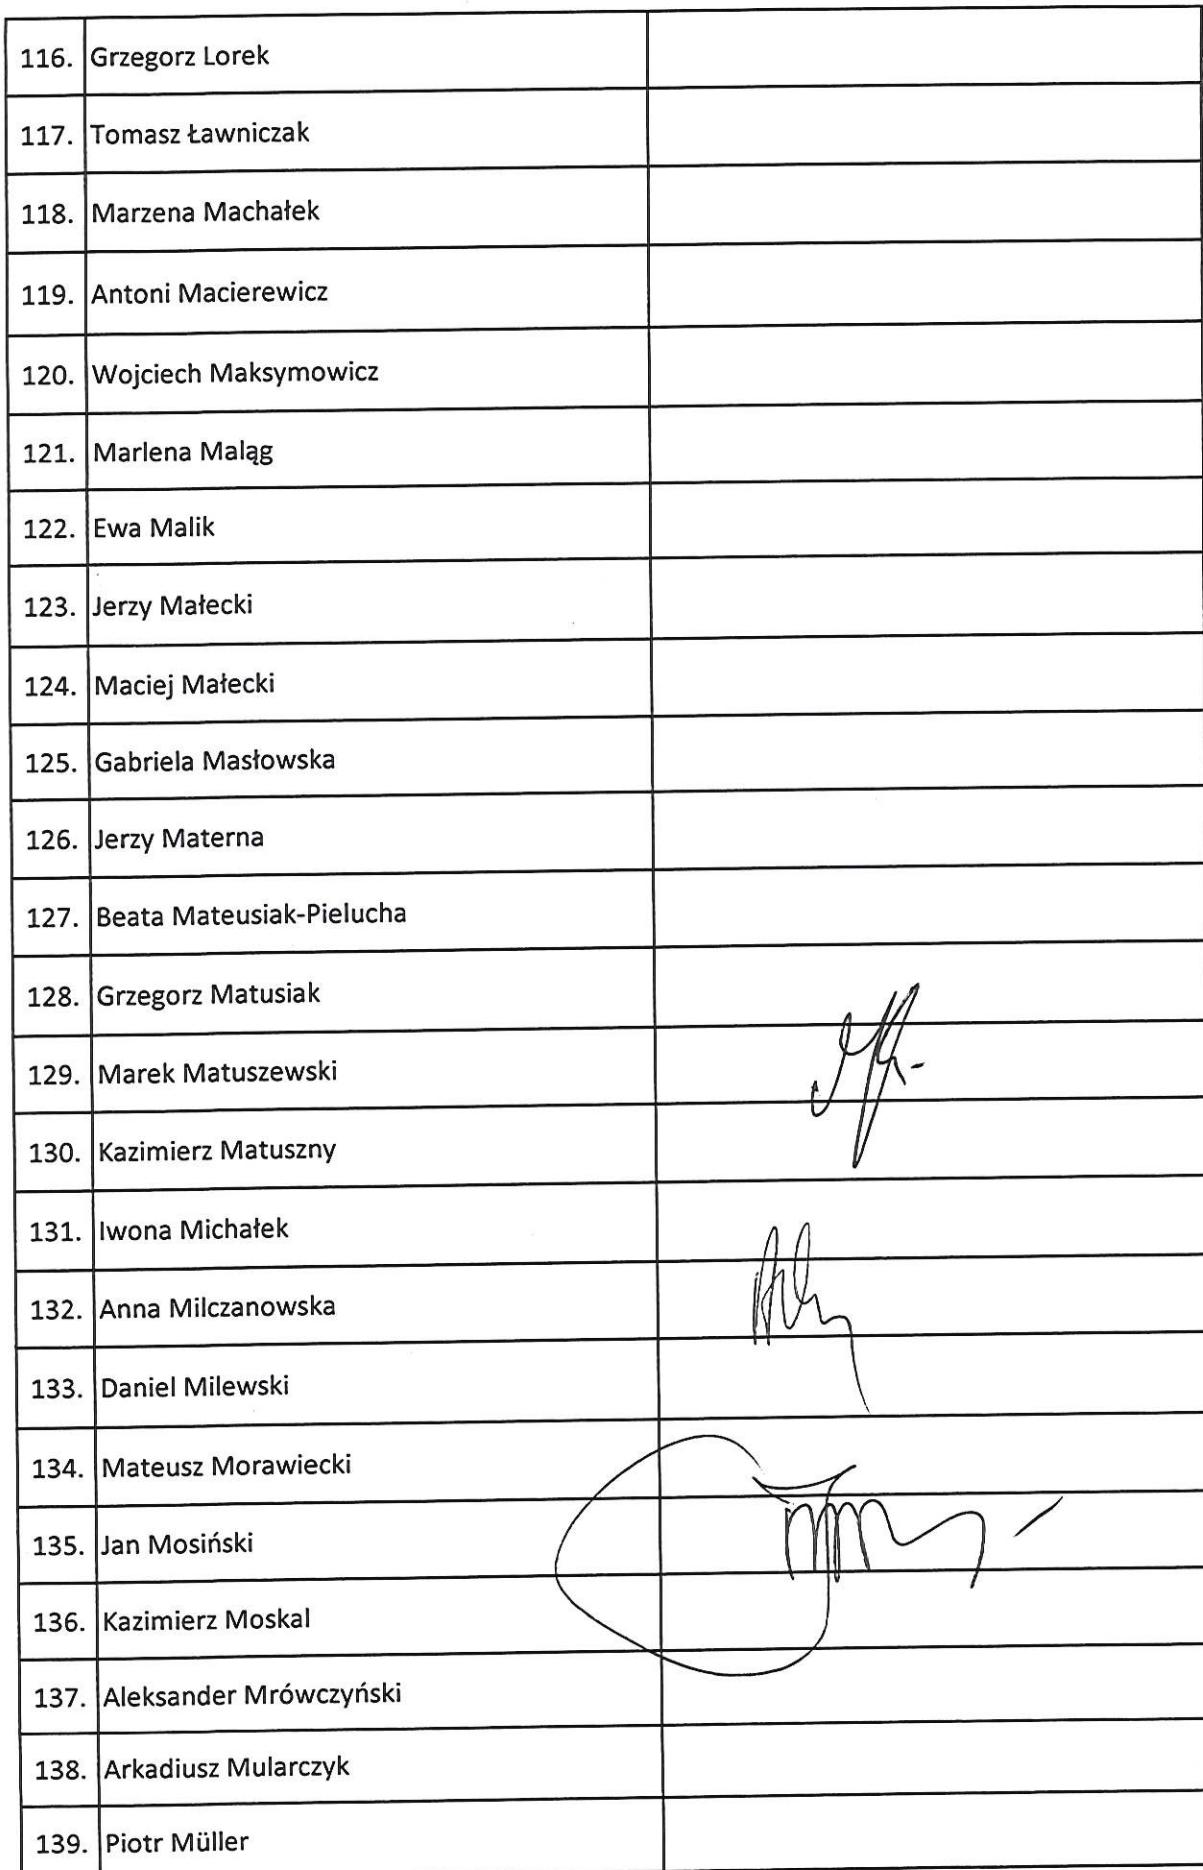 116. Grzegorz Lorek
117. Tomasz Ławniczak
118. Marzena Machałek
119. Antoni Macierewicz
120. Wojciech Maksymowicz
121. Marlena Maląg
122. Ewa Malik
123. Jerzy Małecki
124. Maciej Małecki
125. Gabriela Masłowska
126. Jerzy Materna
127. Beata Mateusiak-Pielucha
128. Grzegorz Matusiak
129. Marek Matuszewski
130. Kazimierz Matuszny
131. Iwona Michałek
132. Anna Milczanowska
133. Daniel Milewski
134. Mateusz Morawiecki
135. Jan Mosiński
136. Kazimierz Moskal
137. Aleksander Mrówczyński
138. Arkadiusz Mularczyk
139. Piotr Müller